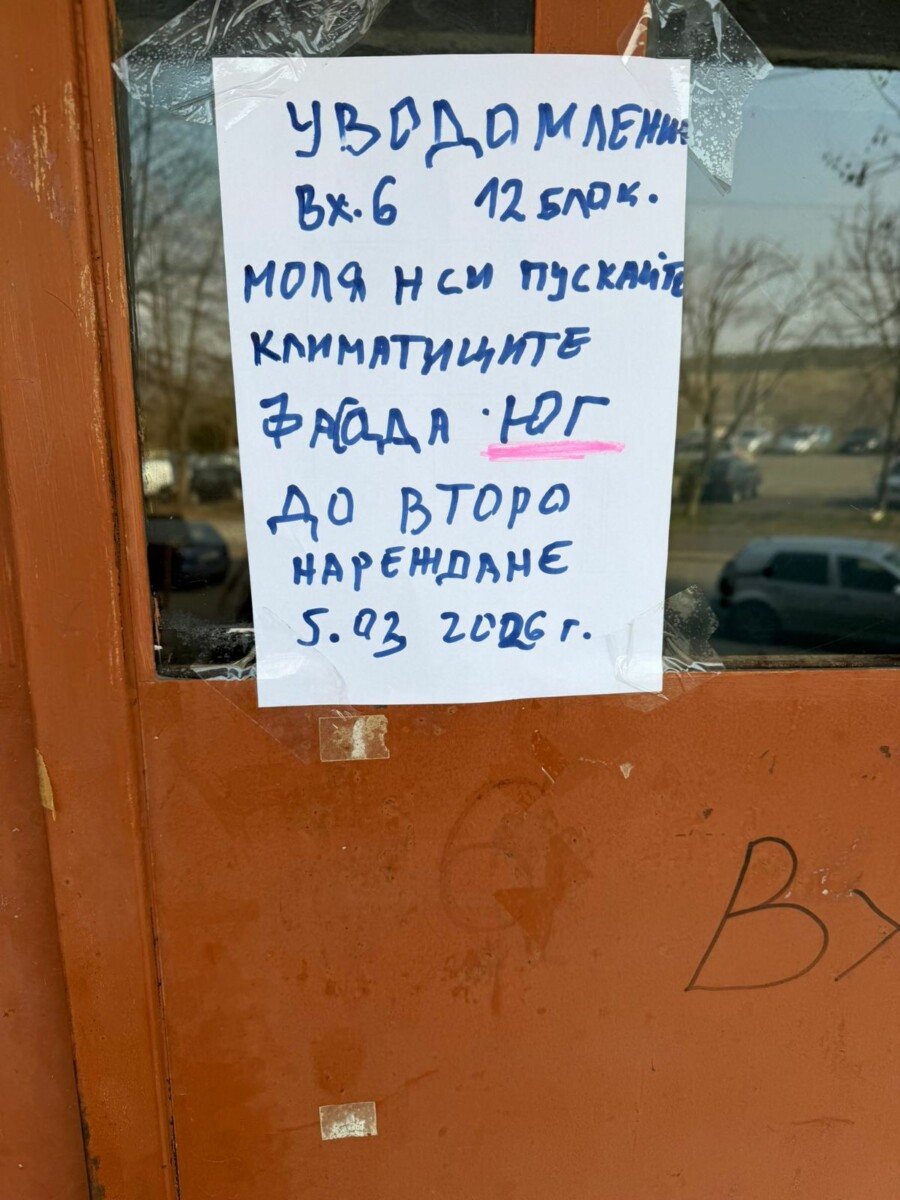 УВОДОМЛЕНИЕ
Вх. 6 12 БЛОК.
МОЛЯ Н СИ ПУСКАЙТЕ
КЛИМАТИЦИТЕ
ФАСАДА ЮГ
ДО ВТОРО
НАРЕЖДАНЕ
5.03 2026 г.
6
Вх